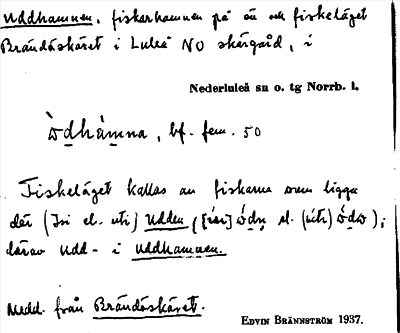 Uddhamnen, fiskarhamnen på ön och fiskeläget
Brändöskäret i Luleå NO skärgård, i
Nederluleå sn o. tg Norrb. l.
ò̱dhàm̱na, bf. fem. 50
Fiskeläget kallas av fiskarna som ligga
där (Isi el. uti) Udden ( el. (úti) );
därav Udd- i Uddhamnen.
Medd. från Brändöskäret.
EDVIN BRÄNNSTRÖM 1937.